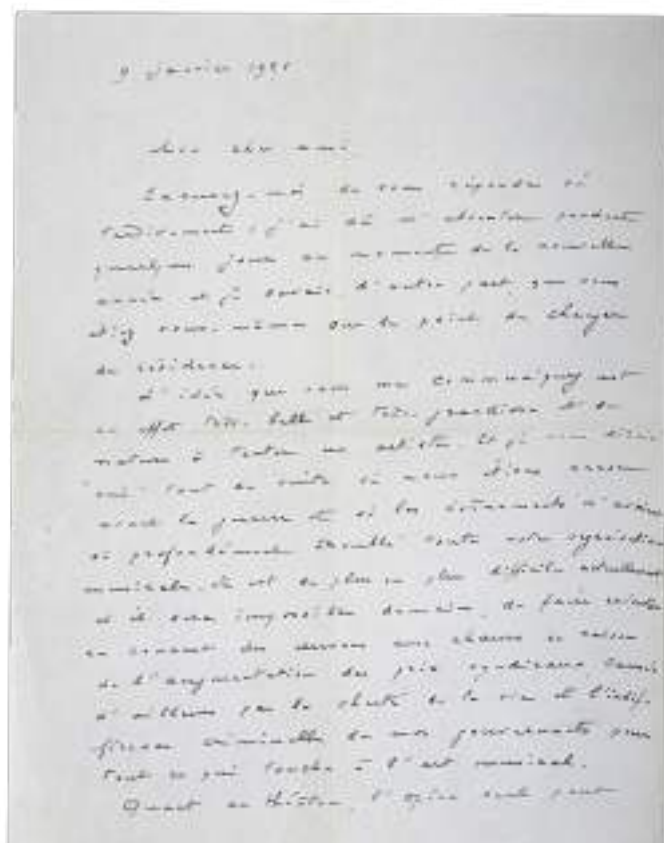 9 janvier 19
Mon cher ami.
Excusez-moi de vous répondre si
tardivement : j'ai dû m'absenter pendant
quelques jours au moment de la nouvelle
année et je savais d'autre part que vous
étiez vous-même sur le point de changer
de résidence.
L'idée que vous me communiquez est
en effet très belle et très et de
nature à tenter un artiste. Et je vous dirais
"oui" tout de suite si nous étions encore
avant la guerre et si les événements n'avaient
si profondément troublé toute notre
musicale. Il est de plus en plus difficile actuellement
et il sera impossible demain, de faire
en concert des œuvres avec chœurs en raison
de l'augmentation des prix syndicaux
d'ailleurs par la cherté de la vie et
criminelle de nos gouvernants pour
tout ce qui touche à l'art musical.
Quant au théâtre, l'opéra seul peut